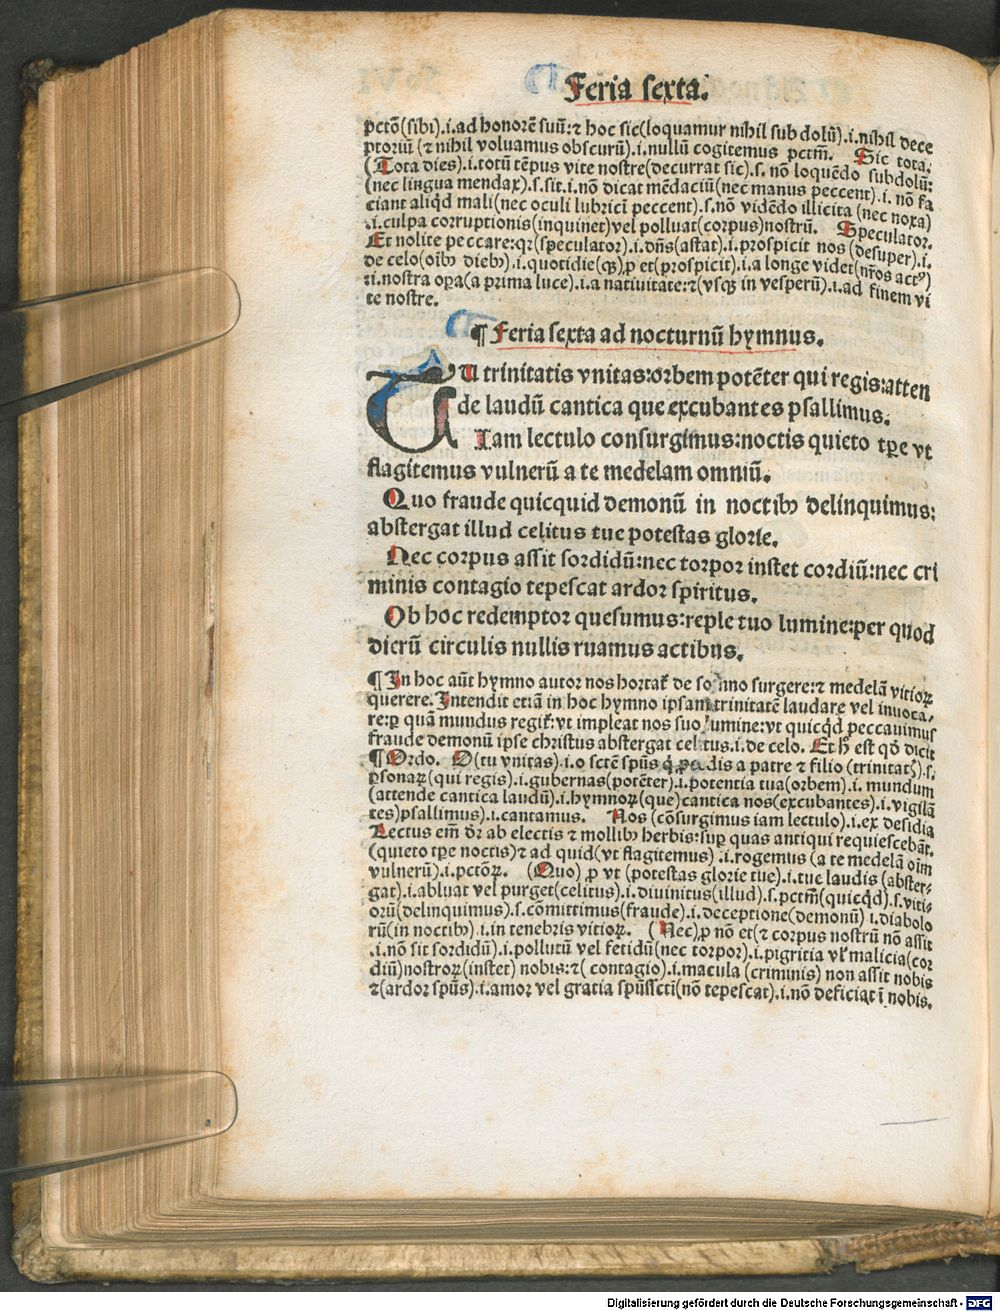 Feria sexta.
pctō(sibi).i.ad honorē suū:⁊ hoc sic(loquamur nihil sub dolū).i.nihil dece
ptoriū (⁊ nihil voluamus obscurū).i.nullū cogitemus pctm̄. Sic tota.
(Tota dies).i.totū tēpus vite nostre(decurrat sic).s. nō loquēdo subdolū:
(nec lingua mendax).s.sit.i.nō dicat mēdaciū(nec manus peccent).i. nō fa
ciant aliqd mali(nec oculi lubrici peccent).s.nō vidēdo illicita (nec noxa)
.i.culpa corruptionis(inquinet)vel polluat(corpus)nostrū. Speculator.
Et nolite peccare:qꝛ(speculator).i.dn̄s(astat).i.prospicit nos (desuper).i.
de celo(oībꝰ diebꝰ).i.quotidie(qꝫ)ꝓ et(prospicit).i.a longe videt(nr̄os actꝰ)
.i.nostra oꝑa(a prima luce).i.a natiuitate:⁊(vsqꝫ in vesperū).i.ad finem vi
te nostre.
¶ Feria sexta ad nocturnū hymnus.
TU trinitatis vnitas:orbem potēter qui regis:atten
de laudū cantica que excubantes psallimus.
Iam lectulo consurgimus:noctis quieto tꝑe vt
flagitemus vulnerū a te medelam omniū.
Quo fraude quicquid demonū in noctibꝰ delinquimus:
abstergat illud celitus tue potestas glorie.
Nec corpus assit sordidū:nec torpor instet cordiū:nec cri
minis contagio tepescat ardor spiritus.
Ob hoc redemptor quesumus:reple tuo lumine:per quod
dierū circulis nullis ruamus actibus.
¶ In hoc aūt hymno autor nos hortat̄ de somno surgere:⁊ medelā vitioꝝ
querere. Intendit etiā in hoc hymno ipsam trinitatē laudare vel inuoca-
re:ꝑ quā mundus regit̄:vt impleat nos suo lumine:vt quicqd peccauimus
fraude demonū ipse christus abstergat celitus.i.de celo. Et h̄ est qd̄ dicit
¶ Ordo. O(tu vnitas).i.o sctē spūs q̇ ꝓcedis a patre ⁊ filio (trinitatꝭ).s.
ꝑsonaꝝ(qui regis).i.gubernas(potēter).i.potentia tua(orbem).i. mundum
(attende cantica laudū).i.hymnoꝝ(que)cantica nos(excubantes).i.vigilā
tes)psallimus).i.cantamus. Nos (cōsurgimus iam lectulo).i.ex desidia
Lectus em̄ dr̄ ab electis ⁊ mollibꝰ herbis:suꝑ quas antiqui requiescebāt.
(quieto tꝑe noctis)⁊ ad quid(vt flagitemus) .i.rogemus (a te medelā oīm
vulnerū).i.pctōꝝ. (Quo) ꝓ vt (potestas glorie tue).i.tue laudis (abster-
gat).i.abluat vel purget(celitus).i.diuinitus(illud).s.pctm̄(quicqd).s.viti-
orū(delinquimus).s.cōmittimus(fraude).i.deceptione(demonū) .i.diabolo
rū(in noctibꝰ).i.in tenebris vitioꝝ. (Nec)ꝓ nō et(⁊ corpus nostrū nō assit
.i.nō sit sordidū).i.pollutū vel fetidū(nec torpor).i.pigritia vl̄ malicia(cor
diū)nostroꝝ(instet) nobis:⁊( contagio).i.macula (criminis) non assit nobis
⁊(ardor spūs).i.amor vel gratia spūssctī(nō tepescat).i.nō deficiat ī nobis.
Digitalisierung gefördert durch die Deutsche Forschungsgemeinschaft - DFG